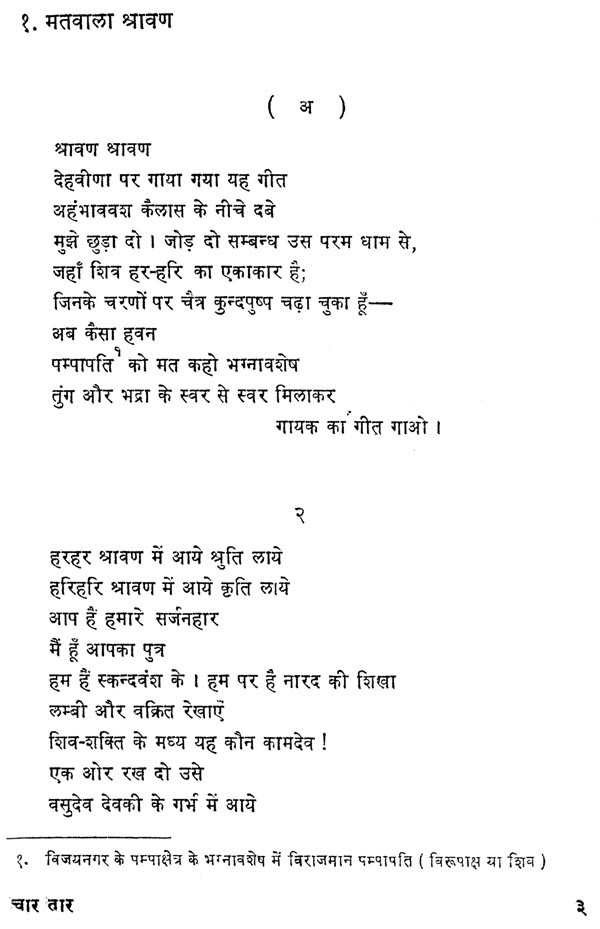 १. मतवाला श्रावण
( अ )
श्रावण श्रावण
देहवीणा पर गाया गया यह गीत
अहंभाववश कैलास के नीचे दबे
मुझे छुड़ा दो । जोड़ दो सम्बन्ध उस परम धाम से,
जहाँ शिव हर-हरि का एकाकार है;
जिनके चरणों पर चैत्र कुन्दपुष्प चढ़ा चुका हूँ—
अब कैसा हवन
पम्पापति१ को मत कहो भग्नावशेष
तुंग और भद्रा के स्वर से स्वर मिलाकर
गायक का गीत गाओ ।
२
हरहर श्रावण में आये श्रुति लाये
हरिहरि श्रावण में आये कृति लाये
आप हैं हमारे सर्जनहार
मैं हूँ आपका पुत्र
हम हैं स्कन्दवंश के । हम पर है नारद की शिखा
लम्बी और वक्रित रेखाएँ
शिव-शक्ति के मध्य यह कौन कामदेव !
एक ओर रख दो उसे
वसुदेव देवकी के गर्भ में आये
१. विजयनगर के पम्पाक्षेत्र के भग्नावशेष में विराजमान पम्पापति ( विरूपाक्ष या शिव )
चार तार ३